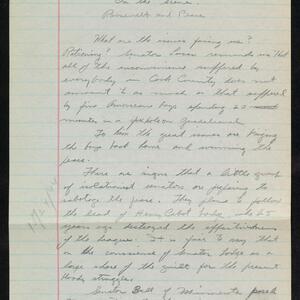 On the Scene.
Roosevelt and Peace
What are the issues facing us?
Rationing? Senator Lucas reminds us that
all of the inconvenience suffered by
everybody in Cook County does not
amount to as much as that suffered
by five American boys spending 20
minutes in a foxhole on Guadalcanal.
To him the great issues are bringing
the boys back home and winning the
peace.
There are signs that a little group
of isolationist senators are preparing to
sabotage the peace. They plan to follow
the lead of Henry Cabot Lodge, who 25
years ago destroyed the effectiveness
of the league. It is fair to say that
on the conscience of Senator Lodge is a
large share of the guilt for the present
bloody struggle.
Senator Ball of Minnesota